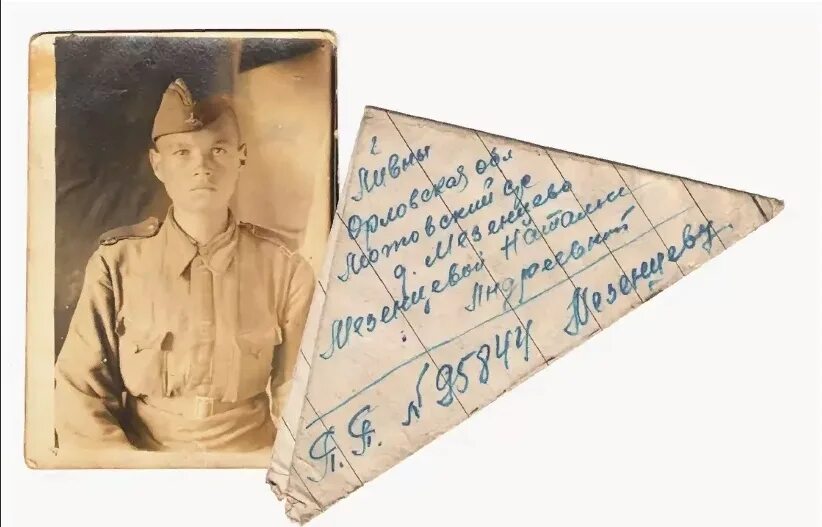 г
Ливны
Орловская обл
Лютовский с/с
д. Мезенцево
Мезенцевой Наталии
Андреевной
П.П. №95844 Мезенцеву